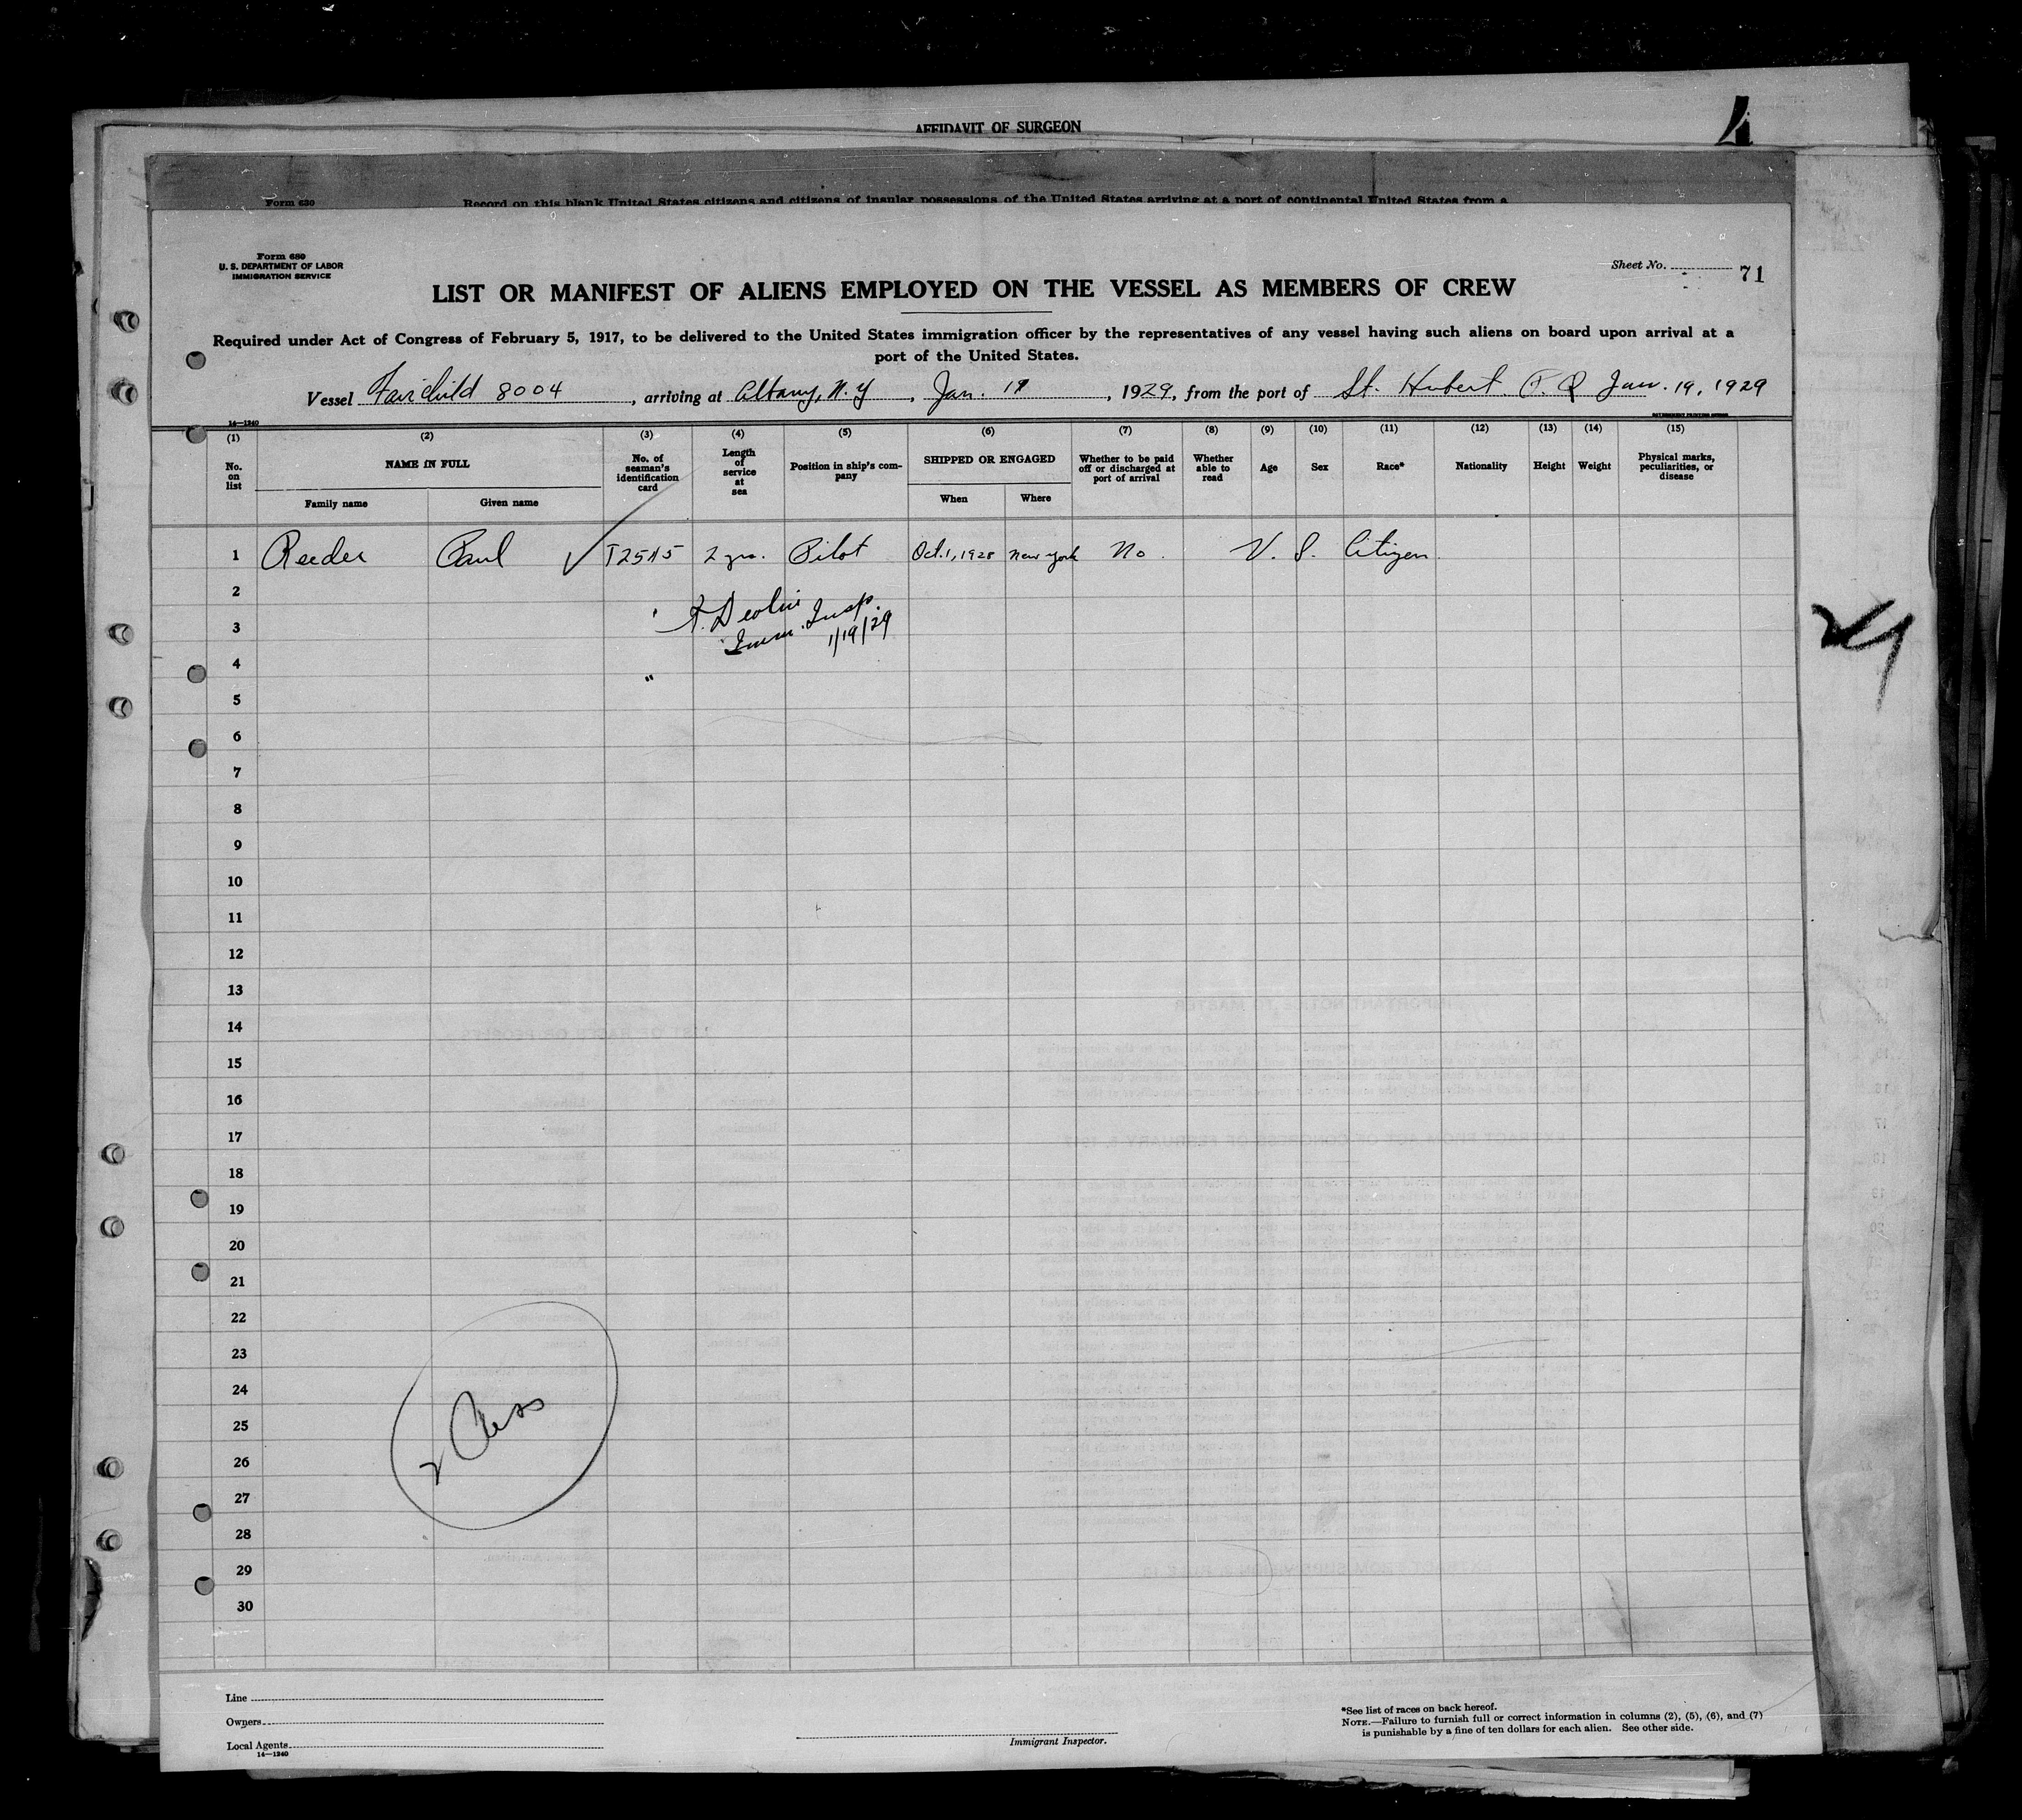 AFFIDAVIT OF SURGEON
Form 630
Record on this blank United States citizens and citizens of insular possessions of the United States arriving at a port of continental United States from a
Form 680
U. S. DEPARTMENT OF LABOR
IMMIGRATION SERVICE
Sheet No. 71
LIST OR MANIFEST OF ALIENS EMPLOYED ON THE VESSEL AS MEMBERS OF CREW
Required under Act of Congress of February 5, 1917, to be delivered to the United States immigration officer by the representatives of any vessel having such aliens on board upon arrival at a
port of the United States.
Vessel Fairchild 8004, arriving at Albany, N.Y, Jan. 19, 1929, from the port of St. Hubert. P. Q Jan. 19, 1929
14—1240
(1) (2) (3) (4) (5) (6) (7) (8) (9) (10) (11) (12) (13) (14) (15)
No. on list
NAME IN FULL
Family name
Given name
No. of seaman's identification card
Length of service at sea
Position in ship's company
SHIPPED OR ENGAGED
When
Where
Whether to be paid off or discharged at port of arrival
Whether able to read
Age
Sex
Race*
Nationality
Height
Weight
Physical marks, peculiarities, or disease
1 Reeder Paul 2 yrs. Pilot Oct. 1, 1928 New York No. U. S. Citizen
2
Imm. Insp.
3
1/19/29
4
5
6
7
8
9
10
11
12
13
14
15
16
17
18
19
20
21
22
23
24
25
26
27
28
29
30
Line
Owners
Local Agents
14—1240
Immigrant Inspector.
*See list of races on back hereof.
NOTE.—Failure to furnish full or correct information in columns (2), (5), (6), and (7)
is punishable by a fine of ten dollars for each alien. See other side.